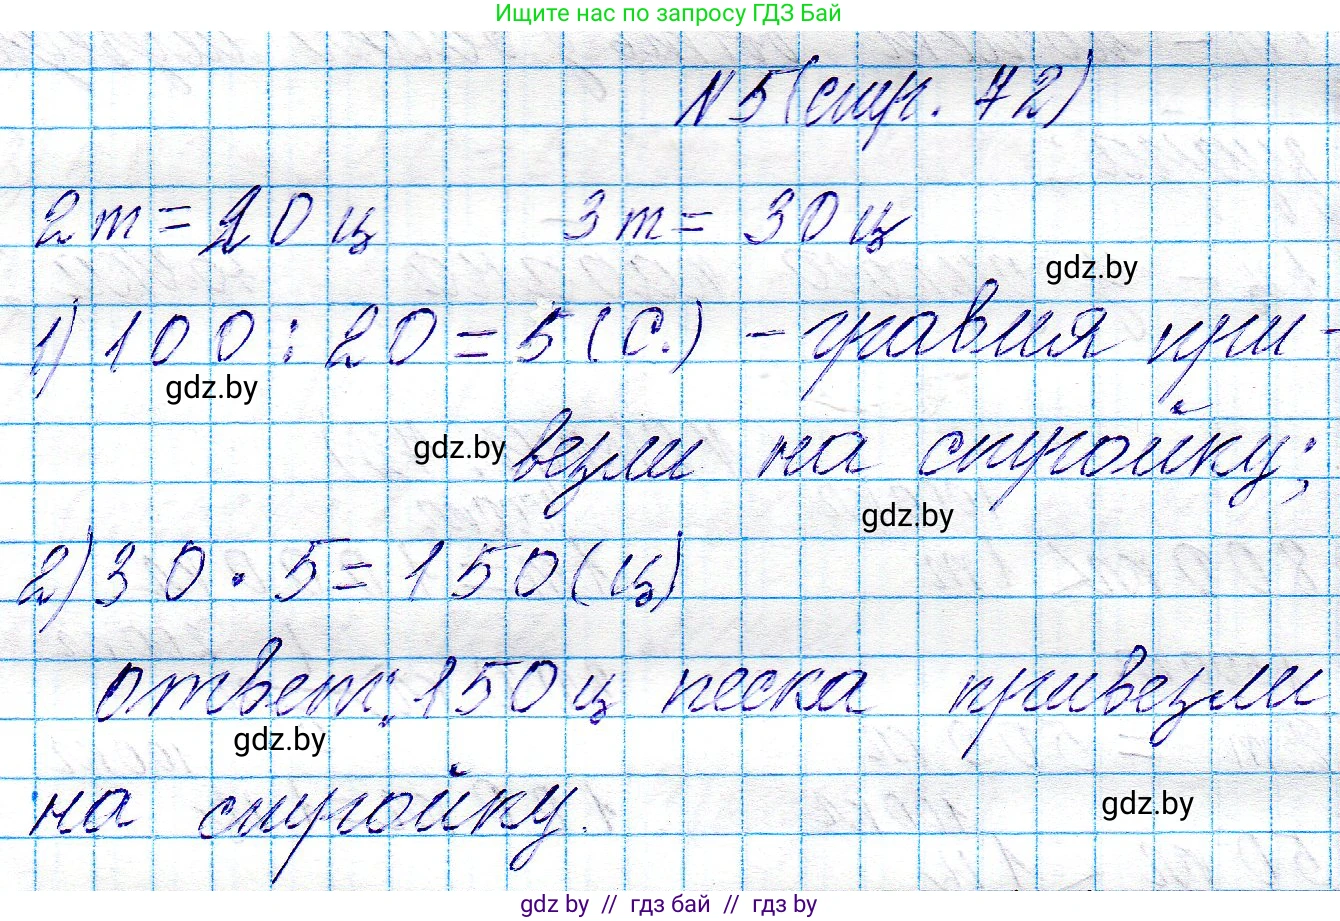 Ищите нас по запросу ГДЗ Бай
N 5 (стр. 72)
2 т = 20 ц 3 т = 30 ц
gdz.by
1) 100 : 20 = 5 (С.) - гравия при-
gdz.by
gdz.by везли на стройку;
gdz.by
2) 30 · 5 = 150 (ц)
ответ: 150 ц песка привезли
gdz.by
на стройку.
gdz.by
gdz by // гдз бай // гдз by